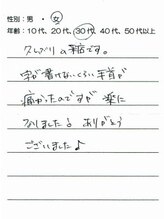 性別：男 ・ 女
年齢：10代、20代、30代、40代、50代以上
です。
字が書けないくらい手首が
痛かったのですが 楽に
なりました！ ありがとう
ございました♪